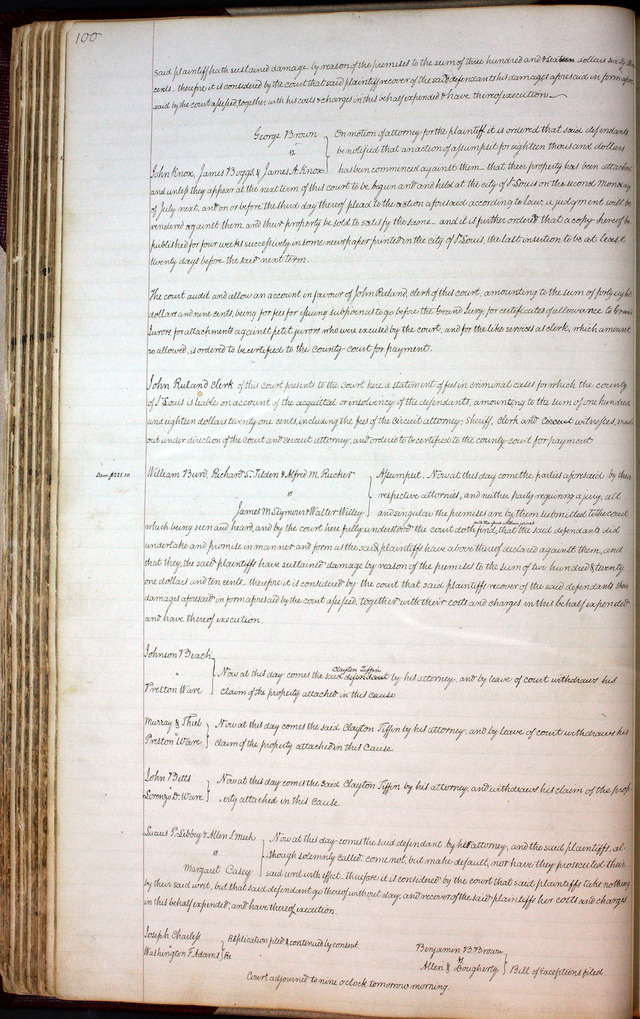 100
said plaintiff hath sustained damage by reason of the premises to the sum of three hundred and dollars sixty
cents. therefore it is considered by the court that said plaintiff recover of the said defendants his damages aforesaid in form afore
said by the court assessed together with his costs & charges in this behalf expended & have thereof execution.
George Brown
vs
John Knox, James Boggs & James A. Knox
On motion of attorney for the plaintiff it is ordered that said defendants
be notified that an action of assumpsit for eighteen thousand dollars
has been commenced against them. that their property has been attached
and unless they appear at the next term of this court to be begun and held at the city of St Louis on the second Monday
of July next, and on or before the third day thereof plead to the action aforesaid according to law, a judgment will be
rendered against them, and their property be sold to satisfy the same. and it is further ordered that a copy hereof be
published for four weeks successively in some newspaper printed in the city of St. Louis, the last insertion to be at least
twenty days before the said next term.
The court audit and allow an account in favour of John Ruland, clerk of this court, amounting to the sum of forty eight
dollars and nine cents, being for fees for issuing subpoenas to go before the Grand Jury, for certificates of allowance to Grand
Jurors for attachments against petit jurors who were excused by the court, and for the like services as clerk, which amount
so allowed, is ordered to be certified to the County court for payment.
John Ruland clerk of this court presents to the court here a statement of fees in criminal cases for which the county
of St. Louis is liable on account of the acquittal or insolvency of the defendants, amounting to the sum of one hundred
and eighteen dollars twenty one cents, including the fees of the circuit attorney, Sheriff, clerk and witnesses, made
out under direction of the court and circuit attorney, and ordered to be certified to the county court for payment
Dam. $221.10
William Burd, Richard S. Tilden & Alfred M. Rucker
vs
James M. Seymour & Walter Willey
Assumpsit. Now at this day come the parties aforesaid by their
respective attornies, and neither party requiring a jury, all
and singular the premises are by them submitted to the court
which being seen and heard, and by the court here fully understood the court doth find, that the said defendants did
undertake and promise in manner and form as the said plaintiffs have above thereof declared against them, and
that they, the said plaintiffs have sustained damage by reason of the premises to the sum of two hundred & twenty
one dollars and ten cents. therefore it is considered by the court that said plaintiffs recover of the said defendants their
damages aforesaid in form aforesaid by the court assessed, together with their costs and charges in this behalf expended
and have thereof execution.
Johnson & Beach
vs
Preston Ware
Clayton Tiffin
Now at this day comes the said defendant by his attorney, and by leave of court withdraws his
claim of the property attached in this cause
Murray & Thiel
vs
Preston Ware
Now at this day comes the said Clayton Tiffin by his attorney, and by leave of court withdraws his
claim of the property attached in this cause.
John Betts
vs
Lorenzo D. Ware
Now at this day comes the said Clayton Tiffin by his attorney, and withdraws his claim of the prop
erty attached in this cause.
Lucius P. Libbey & Allen S. Mick
vs
Margaret Casey
Now at this day comes the said defendant by her attorney, and the said plaintiffs, al
though solemnly called, come not, but make default, nor have they prosecuted their
said writ with effect. therefore it is considered by the court that said plaintiffs take nothing
by their said writ, but that said defendant go thereof without day, and recover of the said plaintiffs her costs and charges
in this behalf expended, and have thereof execution.
Joseph Charless
vs
Washington F. Adams
Replication filed & continued by consent.
Benjamin B. Brown
vs
Allen & Dougherty
Bill of exceptions filed.
Court adjourned to nine o'clock tomorrow morning.